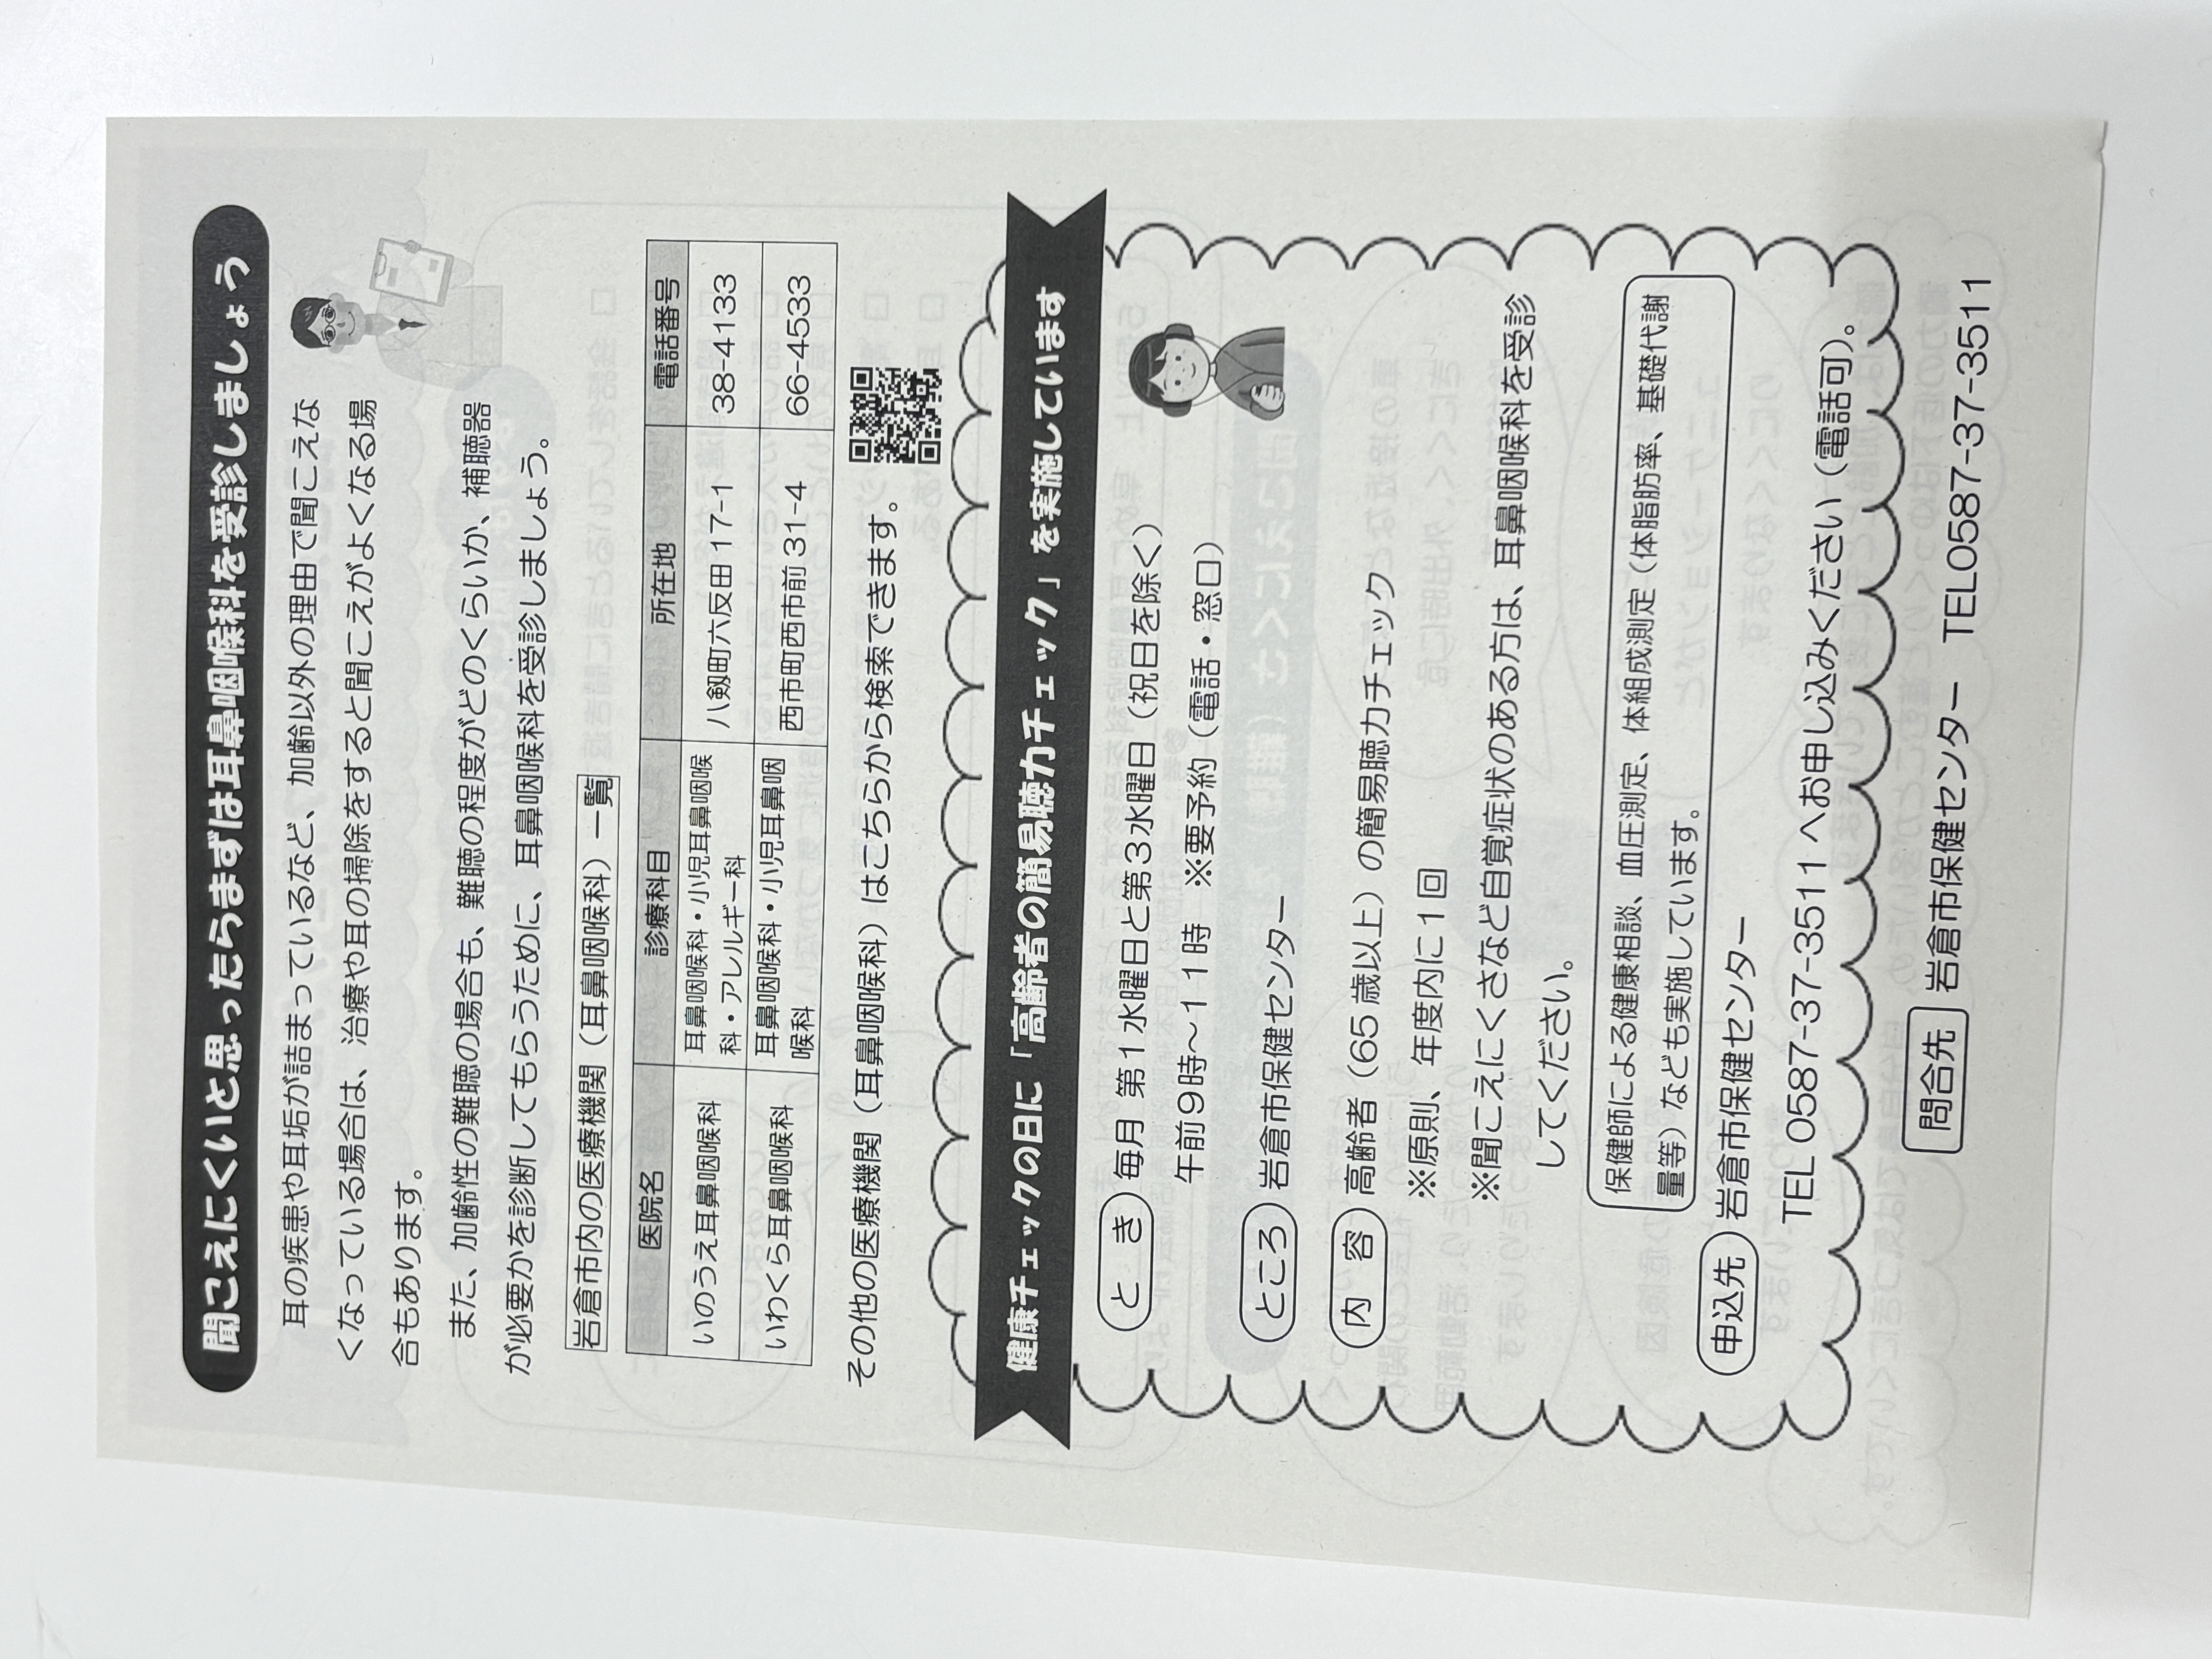 聞こえにくいと思ったらまずは耳鼻咽喉科を受診しましょう
耳の疾患や耳垢が詰まっているなど、加齢以外の理由で聞こえな
くなっている場合は、治療や耳の掃除をすると聞こえがよくなる場
合もあります。
また、加齢性の難聴の場合も、難聴の程度がどのくらいか、補聴器
が必要かを診断してもらうために、耳鼻咽喉科を受診しましょう。
岩倉市内の医療機関（耳鼻咽喉科）一覧
医院名 診療科目 所在地 電話番号
いのうえ耳鼻咽喉科 耳鼻咽喉科・小児耳鼻咽喉 八剱町六反田 17-1 38-4133
科・アレルギー科
いわくら耳鼻咽喉科 耳鼻咽喉科・小児耳鼻咽 西市町西市前 31-4 66-4533
喉科
その他の医療機関（耳鼻咽喉科）はこちらから検索できます。
健康チェックの日に「高齢者の簡易聴力チェック」を実施しています
と き 毎月 第１水曜日と第３水曜日（祝日を除く）
午前９時～１１時 ※要予約（電話・窓口）
ところ 岩倉市保健センター
内 容 高齢者（65 歳以上）の簡易聴力チェック
※原則、年度内に１回
※聞こえにくさなど自覚症状のある方は、耳鼻咽喉科を受診
してください。
保健師による健康相談、血圧測定、体組成測定（体脂肪率、基礎代謝
量等）なども実施しています。
申込先 岩倉市保健センター
TEL 0587-37-3511 へお申し込みください（電話可）。
問合先 岩倉市保健センター TEL0587-37-3511